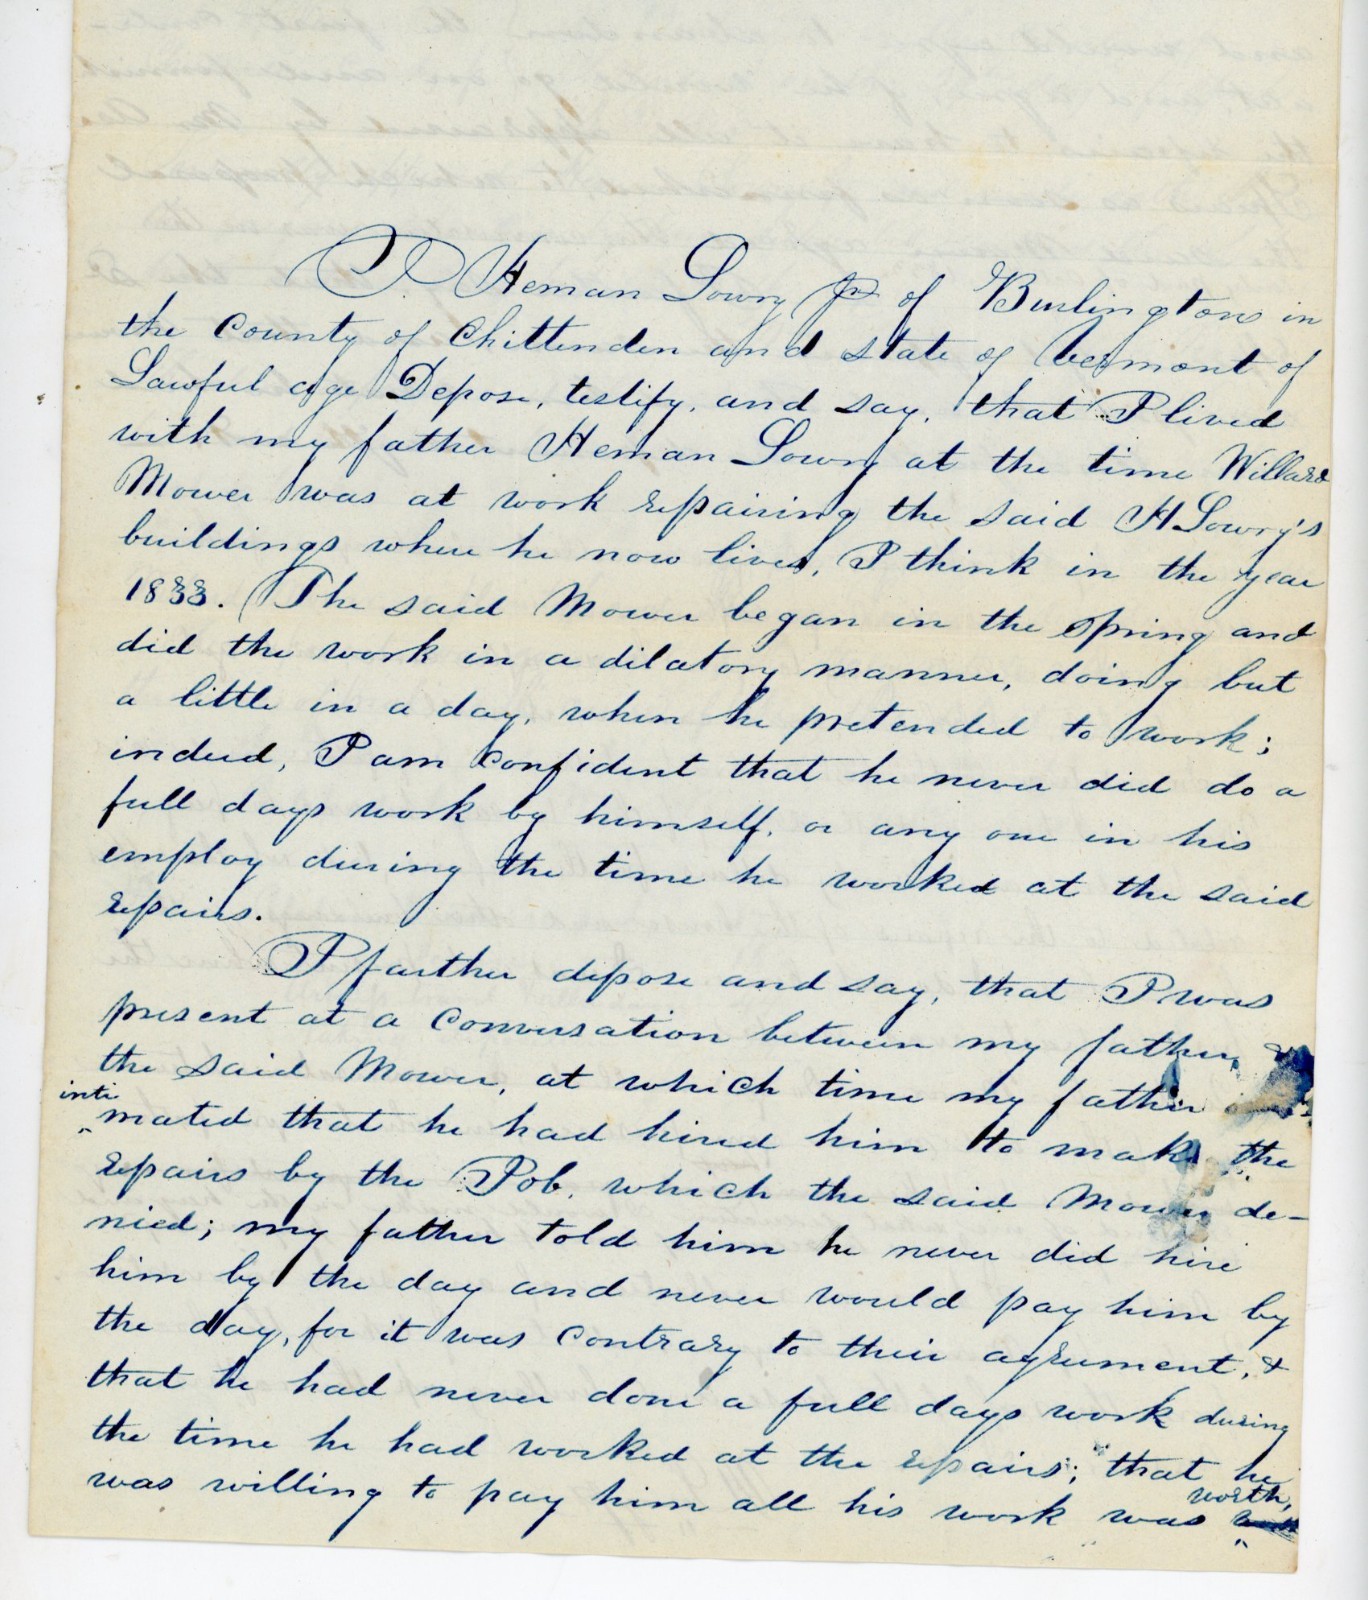 I Heman Lowry Jr of Burlington in
the County of Chittenden and state of Vermont of
Lawful age Depose, testify, and say, that I lived
with my father Heman Lowry at the time Willard
Mower was at work repairing the said H Lowry's
buildings where he now lives, I think in the year
1833. The said Mower began in the spring and
did the work in a dilatory manner, doing but
a little in a day, when he pretended to work;
indeed, I am confident that he never did do a
full days work by himself, or any one in his
employ during the time he worked at the said
repairs.
I farther depose and say, that I was
present at a conversation between my father, &
the said Mower, at which time my father
inti
mated that he had hired him to make the
repairs by the Job, which the said Mower de-
nied; my father told him he never did hire
him by the day and never would pay him by
the day, for it was contrary to their agreement, &
that he had never done a full days work during
the time he had worked at the repairs; that he
was willing to pay him all his work was worth,